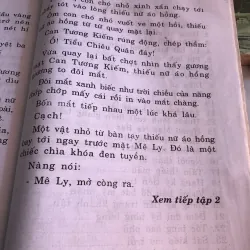 con chó nhỏ xinh xắn chạy tới
tót vào lòng thiếu nữ áo hồng.
con chó nhỏ vuốt ve một hồi, thiếu
áo hồng từ từ quay mặt lại.
Can Tương Kiếm rúng động, chép thầm:
Ồ! Tiểu Chiêu Quân đấy!
quay lại bất chợt nhìn thấy gương
Can Tương Kiếm, thiếu nữ áo hồng
to đôi mắt.
Đôi mắt xanh biếc như trời chiều của nàng
chớp mấy cái rồi in vào mắt chàng.
Bốn mắt tiếp nhau một lúc khá lâu.
Cạch!
Một vật nhỏ từ bàn tay thiếu nữ áo hồng
tới ngay trước mặt Mê Ly. Đó là một
chiếc chìa khóa đen tuyền.
Nàng nói:
- Mê Ly, mở còng ra.
Xem tiếp tập 2